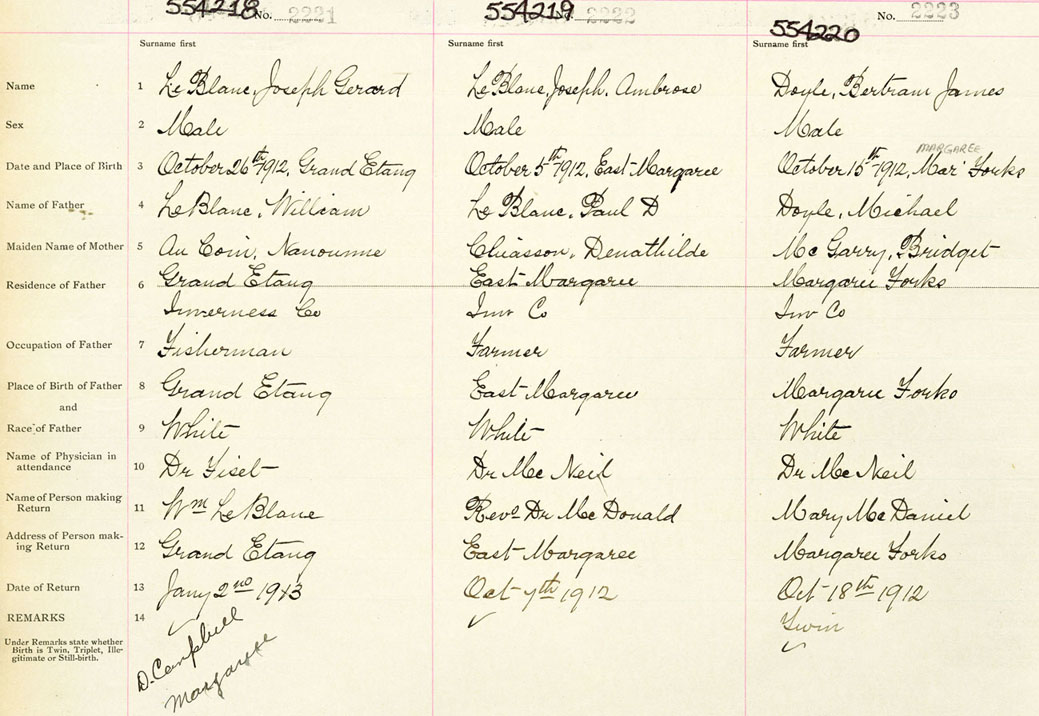 554218 No. 2221 554219 No. 2222 554220 No. 2223
Surname first Surname first Surname first
Name 1 Le Blanc, Joseph Gerard Le Blanc, Joseph, Ambrose Doyle, Bertram James
Sex 2 Male Male Male
MARGAREE
Date and Place of Birth 3 October 26th 1912, Grand Etang October 5th 1912, East Margaree October 15th 1912, Mar' Forks
Name of Father 4 LeBlanc, William Le Blanc, Paul D Doyle, Michael
Maiden Name of Mother 5 Au Coin, Chiasson, Denathilde Mc Garry, Bridget
Residence of Father 6 Grand Etang East Margaree Margaree Forks
Inverness Co Inv Co Inv Co
Occupation of Father 7 Fisherman Farmer Farmer
Place of Birth of Father 8 Grand Etang East Margaree Margaree Forks
and
Race of Father 9 White White White
Name of Physician in
attendance 10 Dr Fiset Dr Mc Neil Dr Mc Neil
Name of Person making
Return 11 Wm LeBlanc Revd Dr Mc Donald Mary Mc Daniel
Address of Person mak-
ing Return 12 Grand Etang East Margaree Margaree Forks
Date of Return 13 Jany 2nd 1913 Oct 7th 1912 Oct 18th 1912
REMARKS 14 Twin
Under Remarks state whether
Birth is Twin, Triplet, Ille-
gitimate or Still-birth.
D. Campbell
Margaree